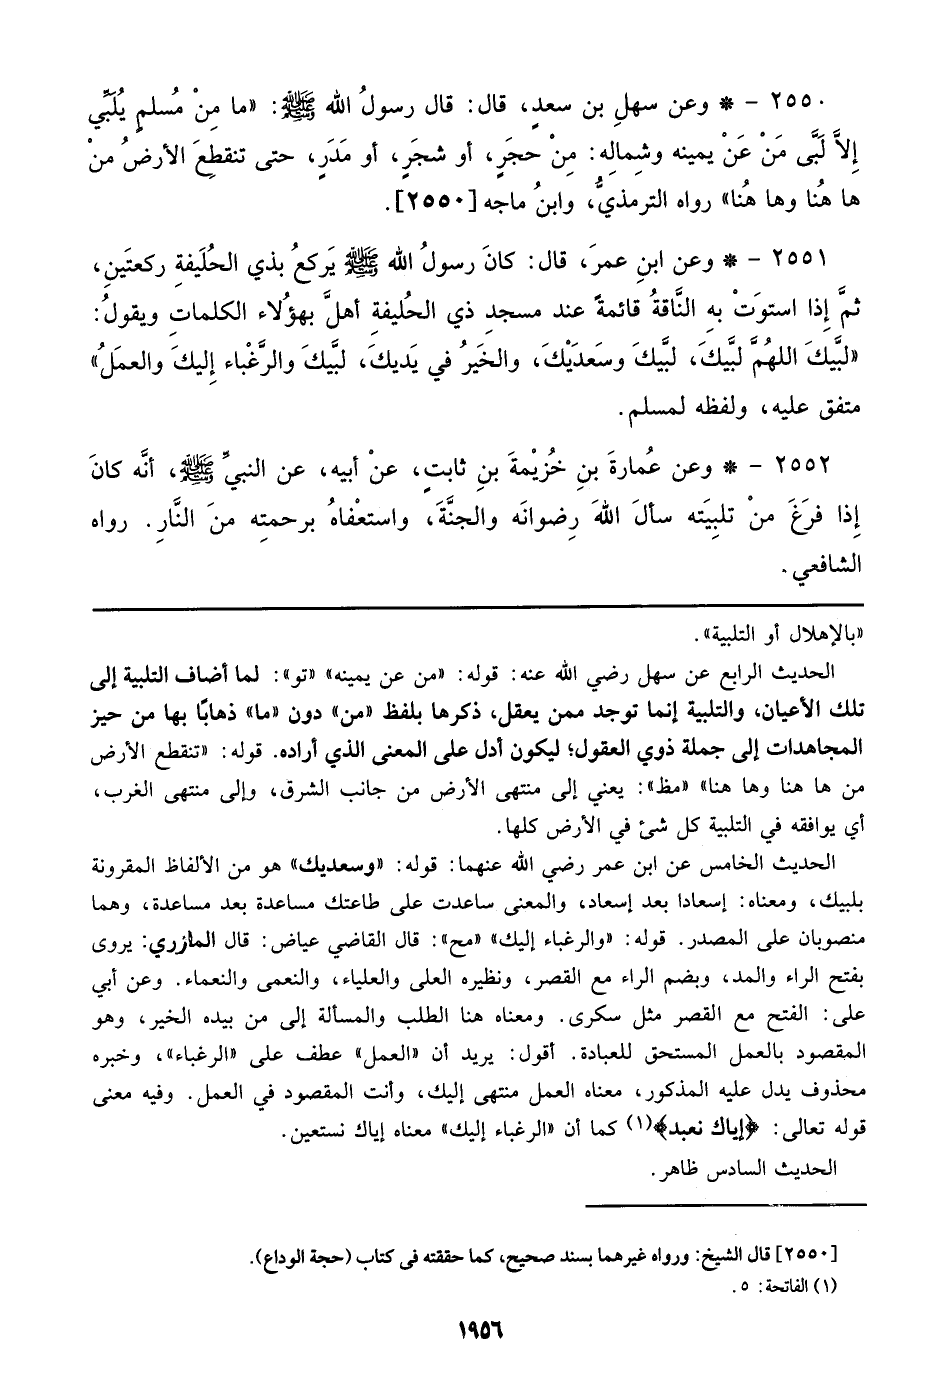 ٢٥٥٠ – * وعن سهلِ بن سعدٍ، قال: قال رسولُ الله ﷺ: «ما مِنْ مُسلمٍ يُلَبِّي
إِلاَّ لَبَّى مَنْ عَنْ يمينه وشِمالِه: مِنْ حجَرٍ، أو شجَرٍ، أو مَدَرٍ، حتى تنقطِعَ الأرضُ منْ
ها هُنا وها هُنا» رواه الترمذيُّ، وابنُ ماجه [٢٥٥٠].
٢٥٥١ – * وعن ابنِ عمرَ، قال: كانَ رسولُ الله ﷺ يَركعُ بذي الحُلَيفةِ ركعتَينِ،
ثمَّ إِذا استوَتْ بهِ النَّاقةُ قائمةً عند مسجدِ ذي الحُليفةِ أهلَّ بهؤُلاء الكلماتِ ويقولُ:
«لبَّيكَ اللهُمَّ لبَّيكَ، لبَّيكَ وسَعدَيْكَ، والخَيرُ في يَديكَ، لبَّيكَ والرَّغْباء إِليكَ والعمَلُ»
متفق عليه، ولفظه لمسلم.
٢٥٥٢ – * وعن عُمارةَ بنِ خُزيْمةَ بنِ ثابتٍ، عنْ أبيه، عن النبيِّ ﷺ، أنَّه كانَ
إِذا فرَغَ منْ تلبِيَته سألَ اللهَ رِضوانَه والجنَّةَ، واستعْفاهُ برحمتِه منَ النَّارِ. رواه
الشافعي.
«بالإهلال أو التلبية».
الحديث الرابع عن سهل رضي الله عنه: قوله: «من عن يمينه» «تو»: لما أضاف التلبية إلى
تلك الأعيان، والتلبية إنما توجد ممن يعقل، ذكرها بلفظ «من» دون «ما» ذهابًا بها من حيز
المجاهدات إلى جملة ذوي العقول؛ ليكون أدل على المعنى الذي أراده. قوله: «تنقطع الأرض
من ها هنا وها هنا» «مظ»: يعني إلى منتهى الأرض من جانب الشرق، وإلى منتهى الغرب،
أي يوافقه في التلبية كل شئ في الأرض كلها.
الحديث الخامس عن ابن عمر رضي الله عنهما: قوله: «وسعديك» هو من الألفاظ المقرونة
بلبيك، ومعناه: إسعادا بعد إسعاد، والمعنى ساعدت على طاعتك مساعدة بعد مساعدة، وهما
منصوبان على المصدر. قوله: «والرغباء إليك» «مح»: قال القاضي عياض: قال المازري: يروى
بفتح الراء والمد، وبضم الراء مع القصر، ونظيره العلى والعلياء، والنعمى والنعماء. وعن أبي
على: الفتح مع القصر مثل سكرى. ومعناه هنا الطلب والمسألة إلى من بيده الخير، وهو
المقصود بالعمل المستحق للعبادة. أقول: يريد أن «العمل» عطف على «الرغباء»، وخبره
محذوف يدل عليه المذكور، معناه العمل منتهى إليك، وأنت المقصود في العمل. وفيه معنى
قوله تعالى: ﴿إياك نعبد﴾(١) كما أن «الرغباء إليك» معناه إياك نستعين.
الحديث السادس ظاهر.
[٢٥٥٠] قال الشيخ: ورواه غيرهما بسند صحيح، كما حققته فى كتاب (حجة الوداع).
(١) الفاتحة: ٥.
١٩٥٦